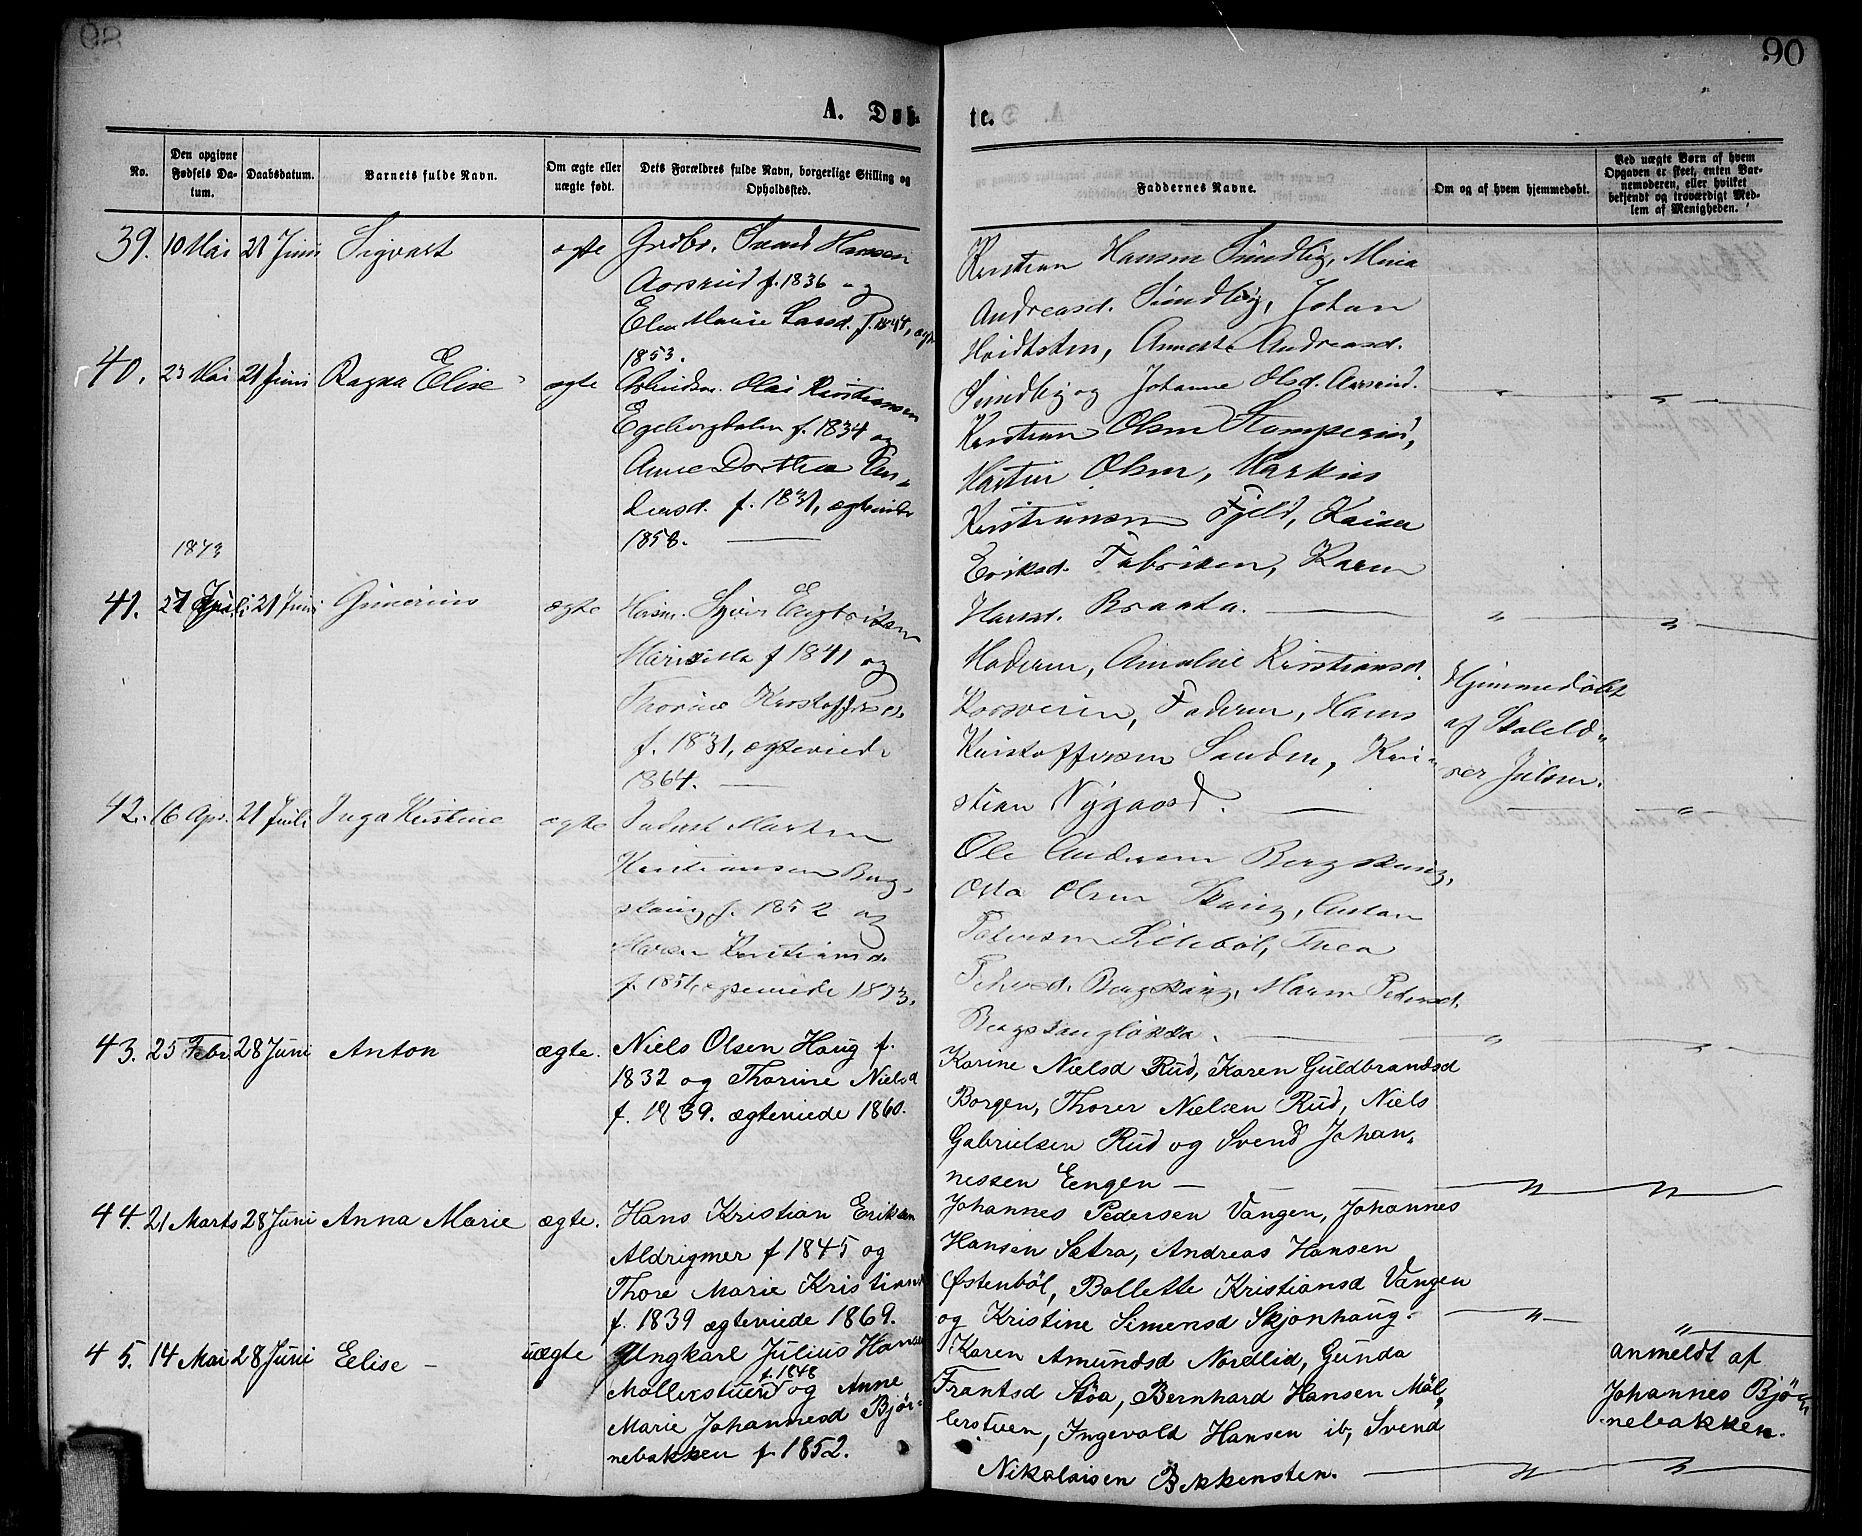 90
A. Døb-
te.
No.
Den opgivne Fødsels Datum.
Daabsdatum.
Barnets fulde Navn.
Om ægte eller uægte født.
Dets Forældres fulde Navn, borgerlige Stilling og Opholdssted.
Faddernes Navne.
Om og af hvem hjemmedøbt.
Ved uægte Børn af hvem Opgaven er skeet, enten Barnemoderen, eller hvilket bekjendt og troværdigt Medlem af Menigheden.
39. 10 Mai 21 Juni Sigvart ægte Grdbr. Svend Hansen
Aarsrud f. 1836 og
Elen Marie Larsd. f. 1844, ægtv
1853.
Kristian Hansen Sundby, Mina
Andreasd. Sundby, Johan
Hvidtsten, Annette Andreasd.
Sundby og Johanne Olsd. Aarsrud. " "
40. 23 Mai 21 Juni Ragna Elise ægte Arbeidsm. Olai Kristiansen
Egebergdalen f. 1834 og
Anne Dorthea
f. 1831, ægteviede
1858.
Kristian Olsen Stamperud,
Martin Olsen, Markus
Kristiansen Fjeld, Kaisa
Eriksd. Fabriken, Karen
Hansd. Braata. " "
1873
41. 27 Juli 21 Juni Gunerius ægte Husm. Syver Engbretsen
f 1841 og
Thorine Kristoffersd.
f. 1831, ægteviede
1864.
Moderen, Amalie Kristiansd.
Korsveien, Faderen, Hans
Kristoffersen Sanden, Kri-
stian Nygaard.
Hjemmedøbt
af Skoleld-
rer Julsen. "
42. 16 Apr. 21 Juli Inga Kristine ægte Inderst Martin
Kristiansen Berg-
skaug f. 1852 og
Maren Kristiansd.
f. 1851, ægteviede 1873.
Ole Andersen Bergskaug,
Otto Olsen Skaug, Gustav
Petersen Sillebøl, Thea
Petersd. Bergskaug, Maren Pedersd.
Bergskaugløkka. " "
43. 25 Febr. 28 Juni Anton ægte. Niels Olsen Haug f.
1832 og Thorine Nielsd
f. 1839. ægteviede 1860.
Karine Nielsd Rud, Karen Guldbrandsd
Borgen, Thorer Nielsen Rud, Niels
Gabrielsen Rud og Svend Johan-
nessen Eengen — " "
44. 21 Marts 28 Juni Anna Marie ægte. Hans Kristian Eriksen
Aldrigmer f 1845 og
Thore Marie Kristiansd
f. 1839 ægteviede 1869.
Johannes Pedersen Vangen, Johannes
Hansen Sætra, Andreas Hansen
Østenbøl, Bollette Kristiansd Vængen
og Kristine Simensd Skjønhaug. " "
45. 14 Mai 28 Juni Eelise — uægte Ungkarl Julius Hansen
f. 1848
Møllerstuen og Anne
Marie Johannesd Bjør-
nebakken f. 1852.
Karen Amundsd Nordlid, Gunda
Frantsd Støa, Bernhard Hansen Møl-
lerstuen, Ingevald Hansen ib, Svend
Nikolaisen Bekkensten. " "
anmeldt af
Johannes Bjø-
nebakken.